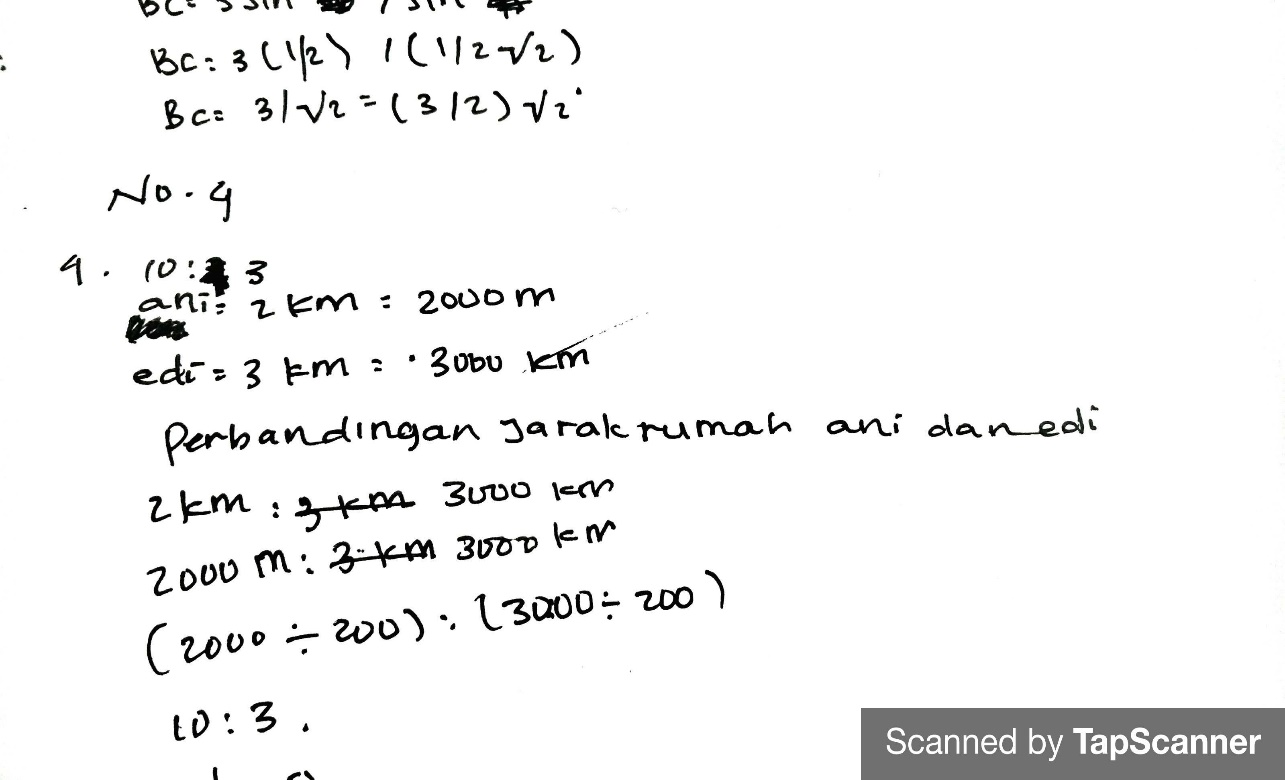 BC = 3 sin / sin
BC = 3 (1/2) / (1/2√2)
BC = 3/√2 = (3/2) √2
No. 4
4. 10 : 3
ani = 2 km = 2000 m
edi = 3 km = 3000 km
Perbandingan Jarak rumah ani dan edi
2 km : 3 km 3000 km
2000 m : 3 km 3000 km
(2000 ÷ 200) : (3000 ÷ 200)
10 : 3.
Scanned by TapScanner